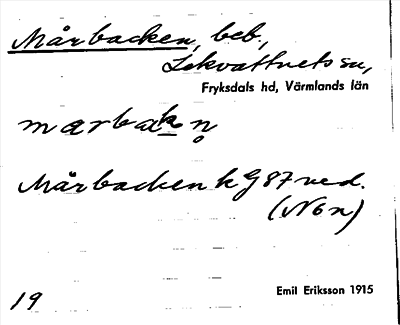 Mårbacken, beb.,
Lekvattnets sn,
Fryksdals hd, Värmlands län
marbakn̥
Mårbacken k G 87 ved.
(N6n)
19 Emil Eriksson 1915